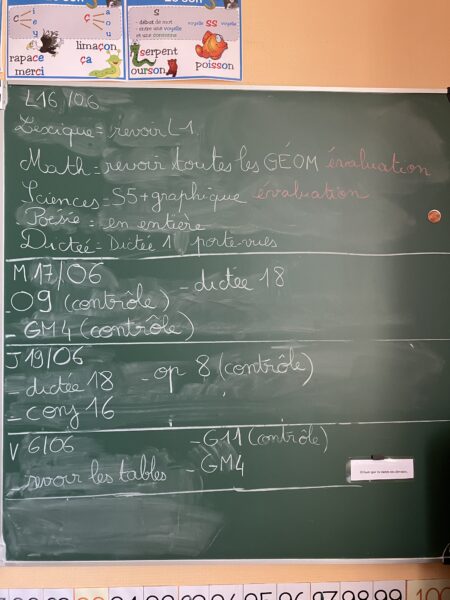 c
i
e
y
ç
a
o
u
rapace
merci
limaçon
ça
s
- début de mot
- entre une voyelle
et une consonne
voyelle ss voyelle
serpent
ourson
poisson
L16/06
Lexique = revoir L1
Math = revoir toutes les GÉOM évaluation
Sciences = S5 + graphique évaluation
Poésie = en entière
Dictée = Dictée 1 porte-vues
M 17/06
- dictée 18
- O9 (contrôle)
- GM4 (contrôle)
J 19/06
- op 8 (contrôle)
- dictée 18
- conj 16
V 6/06
- G11 (contrôle)
revoir les tables
- GM4
94 95 96 97 98 99 100